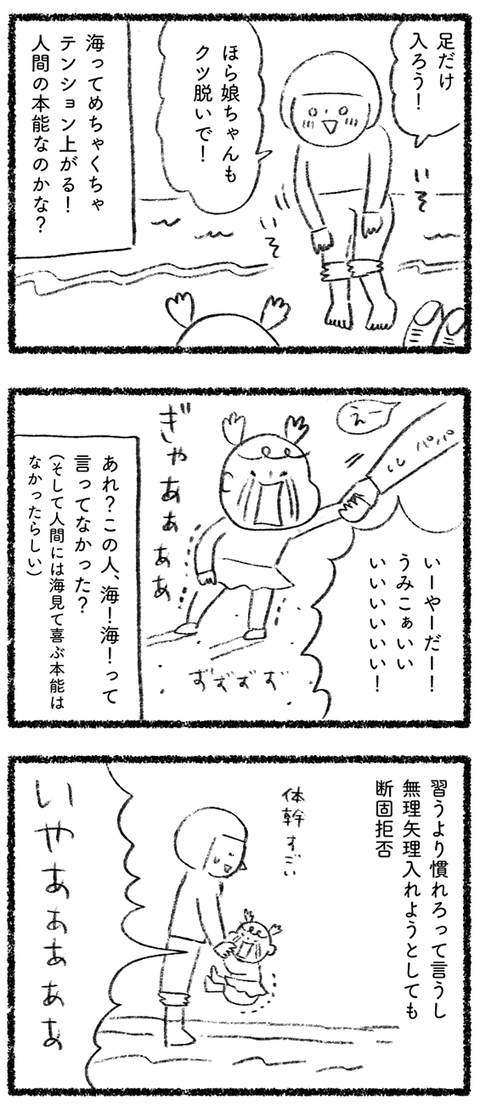 足だけ
入ろう！
いそ
ほら娘ちゃんも
クツ脱いで！
いそ
海ってめちゃくちゃ
テンション上がる！
人間の本能なのかな？
えー
パパ
いーやーだー！
うみこぁいい
いいいいいい！
ぎゃあぁぁぁ
ずずずず
あれ？この人、海！海！って
言ってなかった？
（そして人間には海見て喜ぶ本能は
なかったらしい）
習うより慣れろって言うし
無理矢理入れようとしても
断固拒否
体幹すごい
いやあぁぁぁぁ